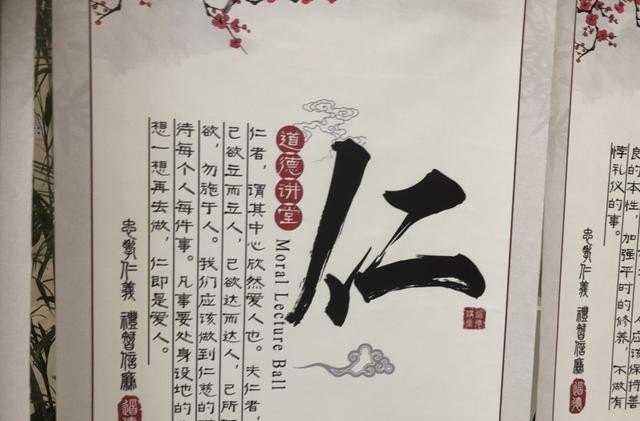 仁
道德讲堂
Moral Lecture Ball
仁者，谓其中心欣然爱人也。夫仁者，
己欲立而立人，己欲达而达人，己所
欲，勿施于人。我们应该做到仁慈的
待每个人每件事。凡事要处身设地的
想一想再去做，仁即是爱人。
忠孝仁義 禮智信廉
道德
人应该保持善
良的本性，加强平时的修养，不做有
悖礼仪的事。
忠孝仁義 禮智信廉
道德